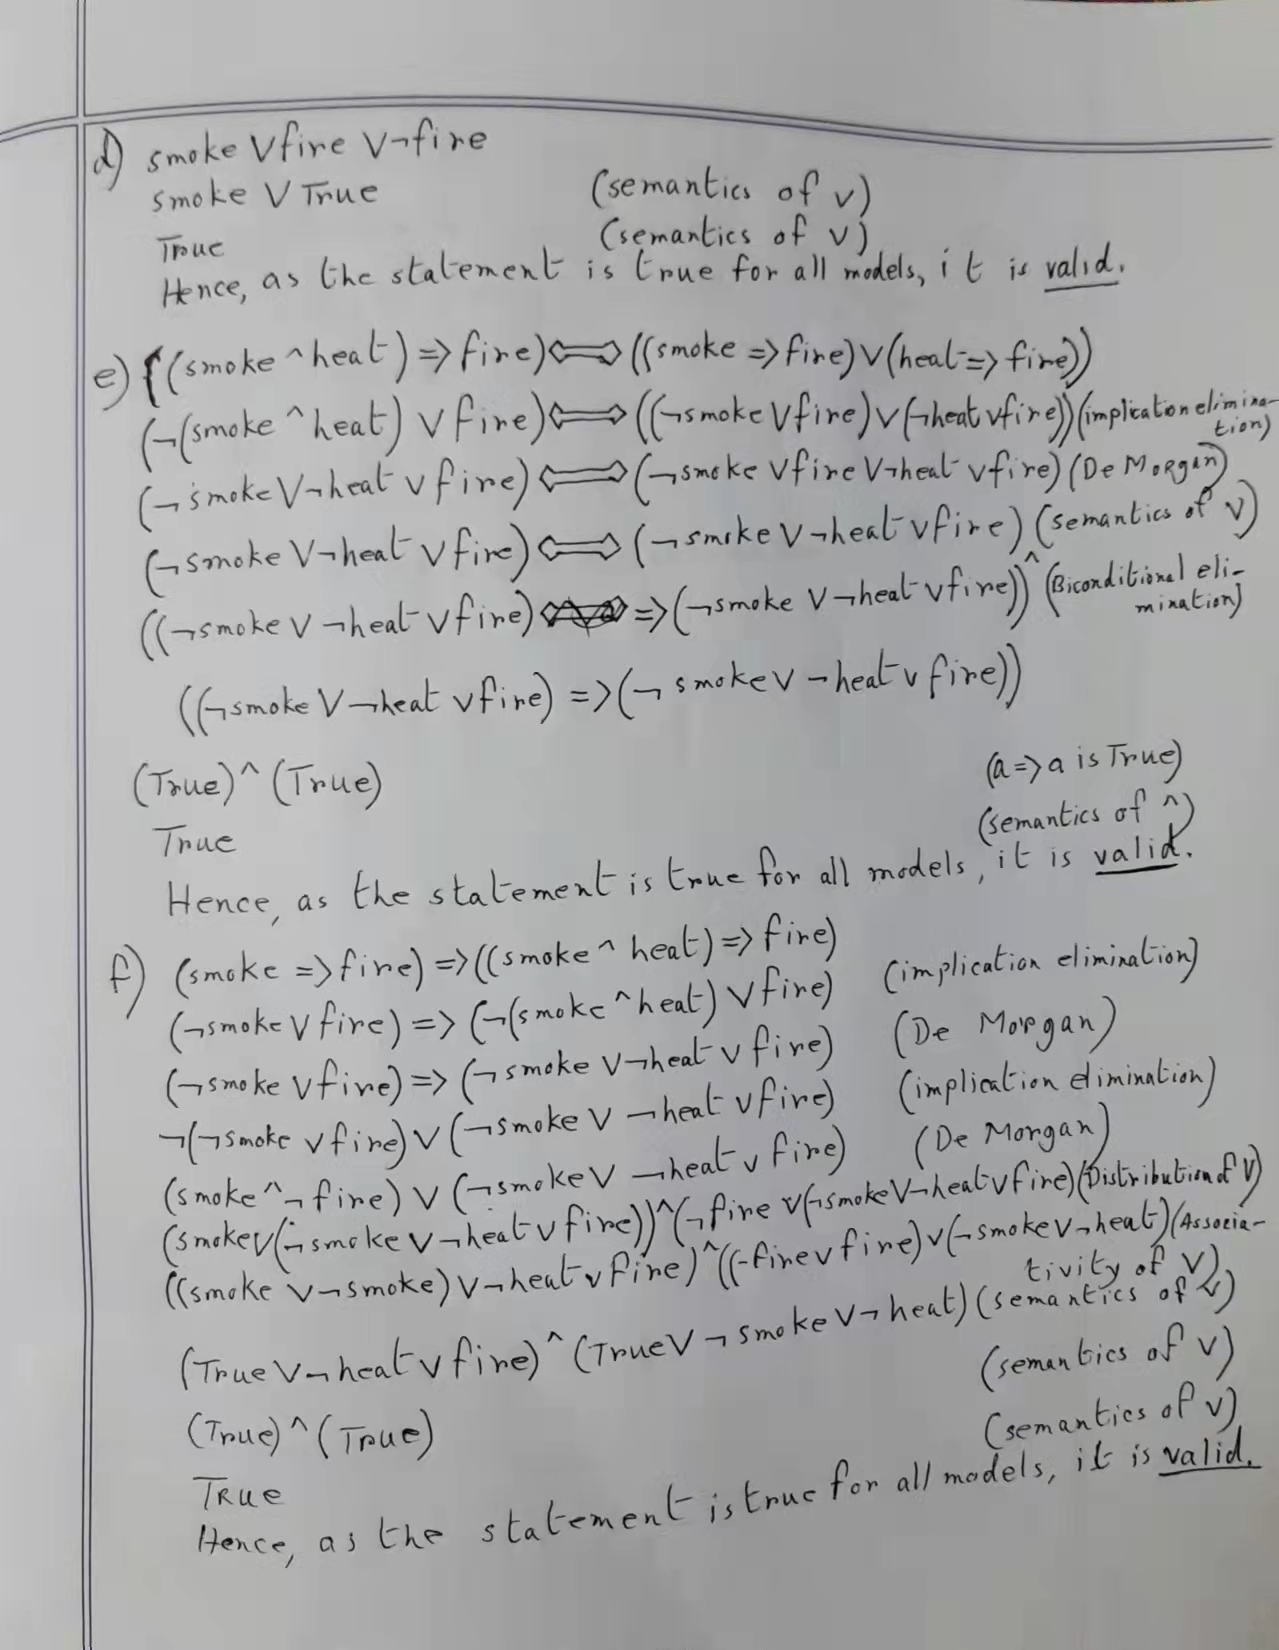 d) smoke ∨ fire ∨ ¬fire
smoke ∨ True (semantics of ∨)
True (semantics of ∨)
Hence, as the statement is true for all models, it is valid.
e) ((smoke ^ heat) => fire) <=> ((smoke => fire) ∨ (heat => fire))
(¬(smoke ^ heat) ∨ fire) <=> ((¬smoke ∨ fire) ∨ (¬heat ∨ fire)) (implication elimina-
tion)
(¬smoke ∨ ¬heat ∨ fire) <=> (¬smoke ∨ fire ∨ ¬heat ∨ fire) (De Morgan)
(¬smoke ∨ ¬heat ∨ fire) <=> (¬smoke ∨ ¬heat ∨ fire) (semantics of ∨)
((¬smoke ∨ ¬heat ∨ fire) => (¬smoke ∨ ¬heat ∨ fire)) ^ (Biconditional eli-
mination)
((¬smoke ∨ ¬heat ∨ fire) => (¬smoke ∨ ¬heat ∨ fire))
(True) ^ (True) (a => a is True)
True (semantics of ^)
Hence, as the statement is true for all models, it is valid.
f) (smoke => fire) => ((smoke ^ heat) => fire)
(¬smoke ∨ fire) => (¬(smoke ^ heat) ∨ fire) (implication elimination)
(¬smoke ∨ fire) => (¬smoke ∨ ¬heat ∨ fire) (De Morgan)
¬(¬smoke ∨ fire) ∨ (¬smoke ∨ ¬heat ∨ fire) (implication elimination)
(smoke ^ ¬fire) ∨ (¬smoke ∨ ¬heat ∨ fire) (De Morgan)
(smoke ∨ (¬smoke ∨ ¬heat ∨ fire)) ^ (¬fire ∨ (¬smoke ∨ ¬heat ∨ fire) (Distribution of ∨)
((smoke ∨ ¬smoke) ∨ ¬heat ∨ fire) ^ ((¬fire ∨ fire) ∨ (¬smoke ∨ ¬heat) (Associa-
tivity of ∨)
(True ∨ ¬heat ∨ fire) ^ (True ∨ ¬smoke ∨ ¬heat) (semantics of ∨)
(True) ^ (True) (semantics of ∨)
True (semantics of ∨)
Hence, as the statement is true for all models, it is valid.